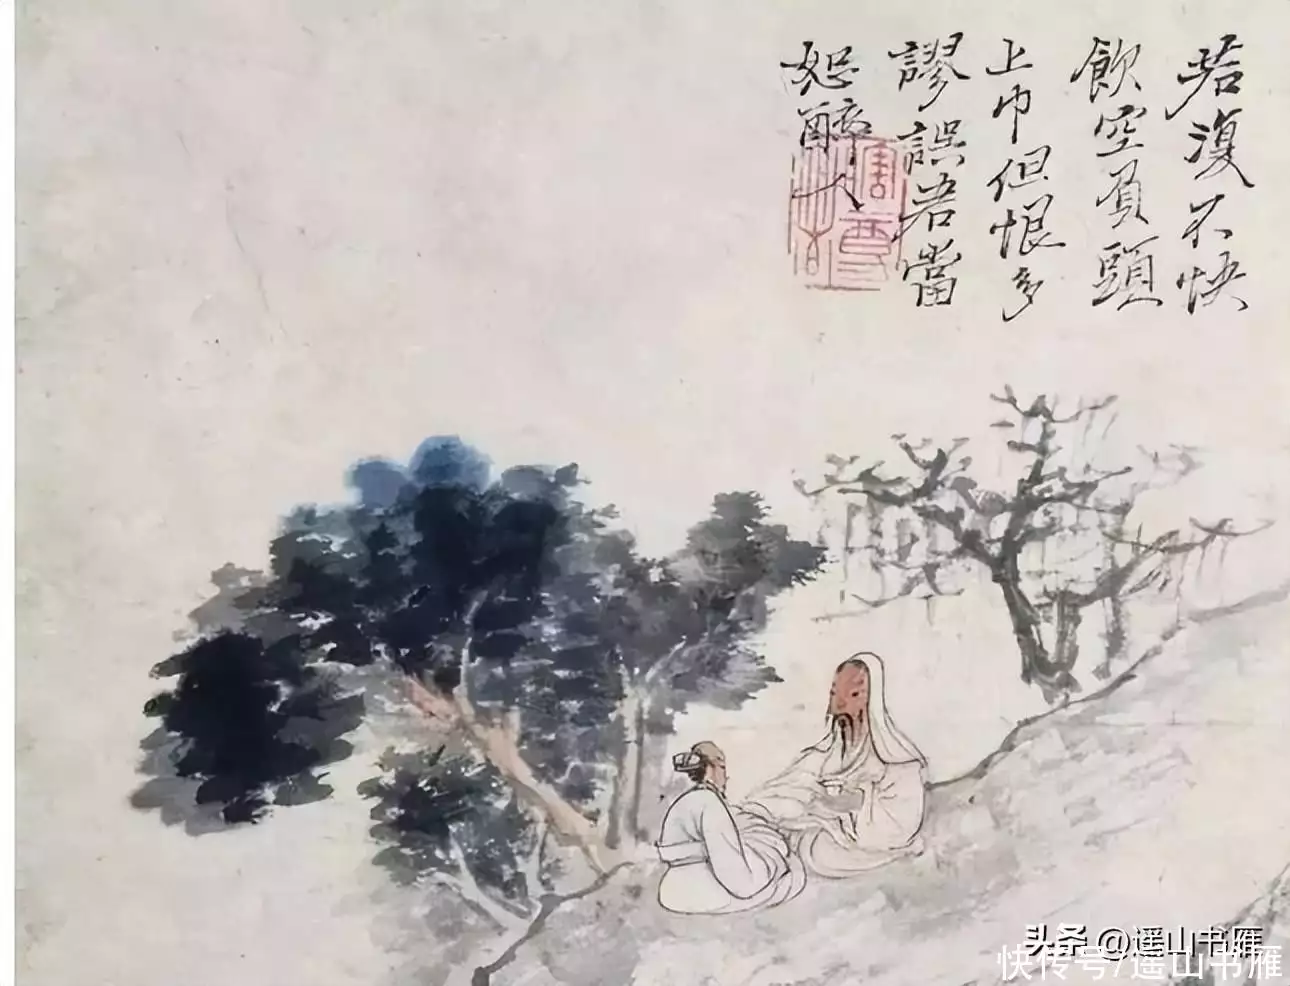 若復不快
飲空負頭
上巾但恨多
謬誤君當
恕醉人
头条 @遥山书雁
快传号/遥山书雁